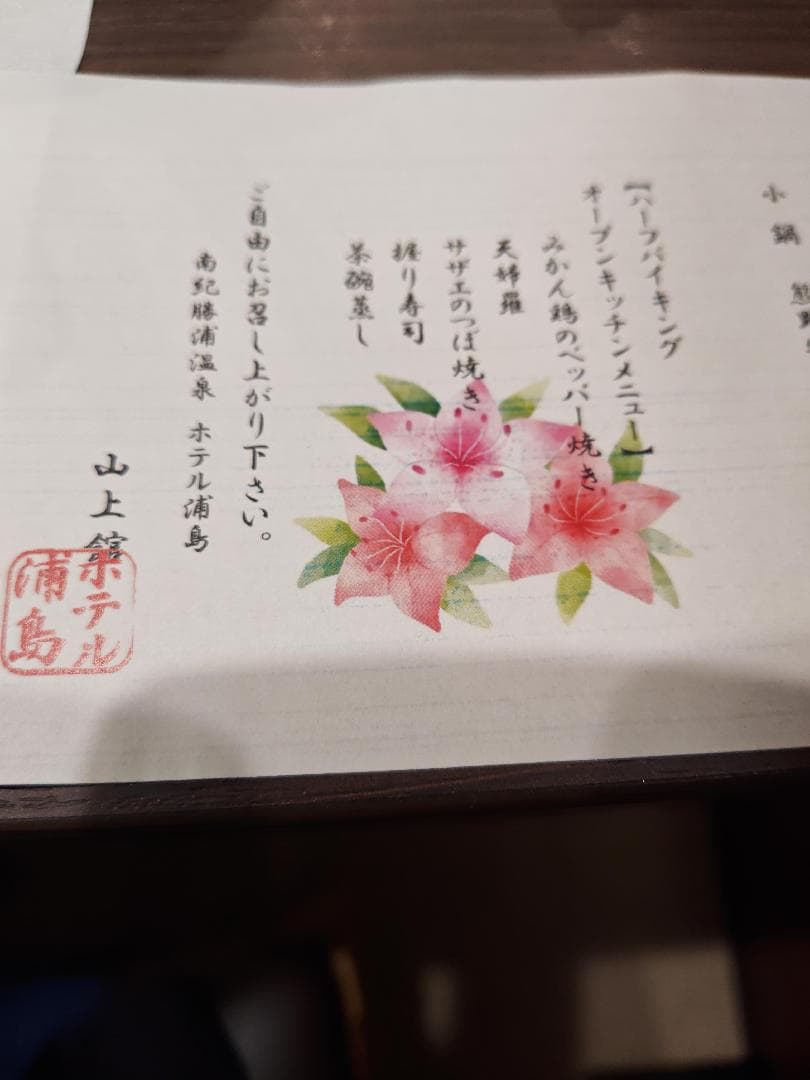 小鍋 熊野
【ハーフバイキング
オープンキッチンメニュー】
みかん鶏のペッパー焼き
天婦羅
サザエのつぼ焼き
握り寿司
茶碗蒸し
ご自由にお召し上がり下さい。
南紀勝浦温泉 ホテル浦島
山上館
ホテル
浦島